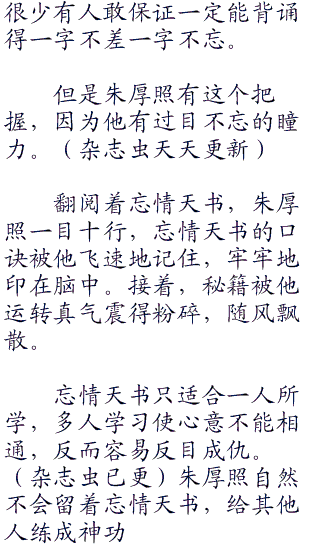 很少有人敢保证一定能背诵
得一字不差一字不忘。
但是朱厚照有这个把
握，因为他有过目不忘的瞳
力。（杂志虫天天更新）
翻阅着忘情天书，朱厚
照一目十行，忘情天书的口
诀被他飞速地记住，牢牢地
印在脑中。接着，秘籍被他
运转真气震得粉碎，随风飘
散。
忘情天书只适合一人所
学，多人学习使心意不能相
通，反而容易反目成仇。
（杂志虫已更）朱厚照自然
不会留着忘情天书，给其他
人练成神功